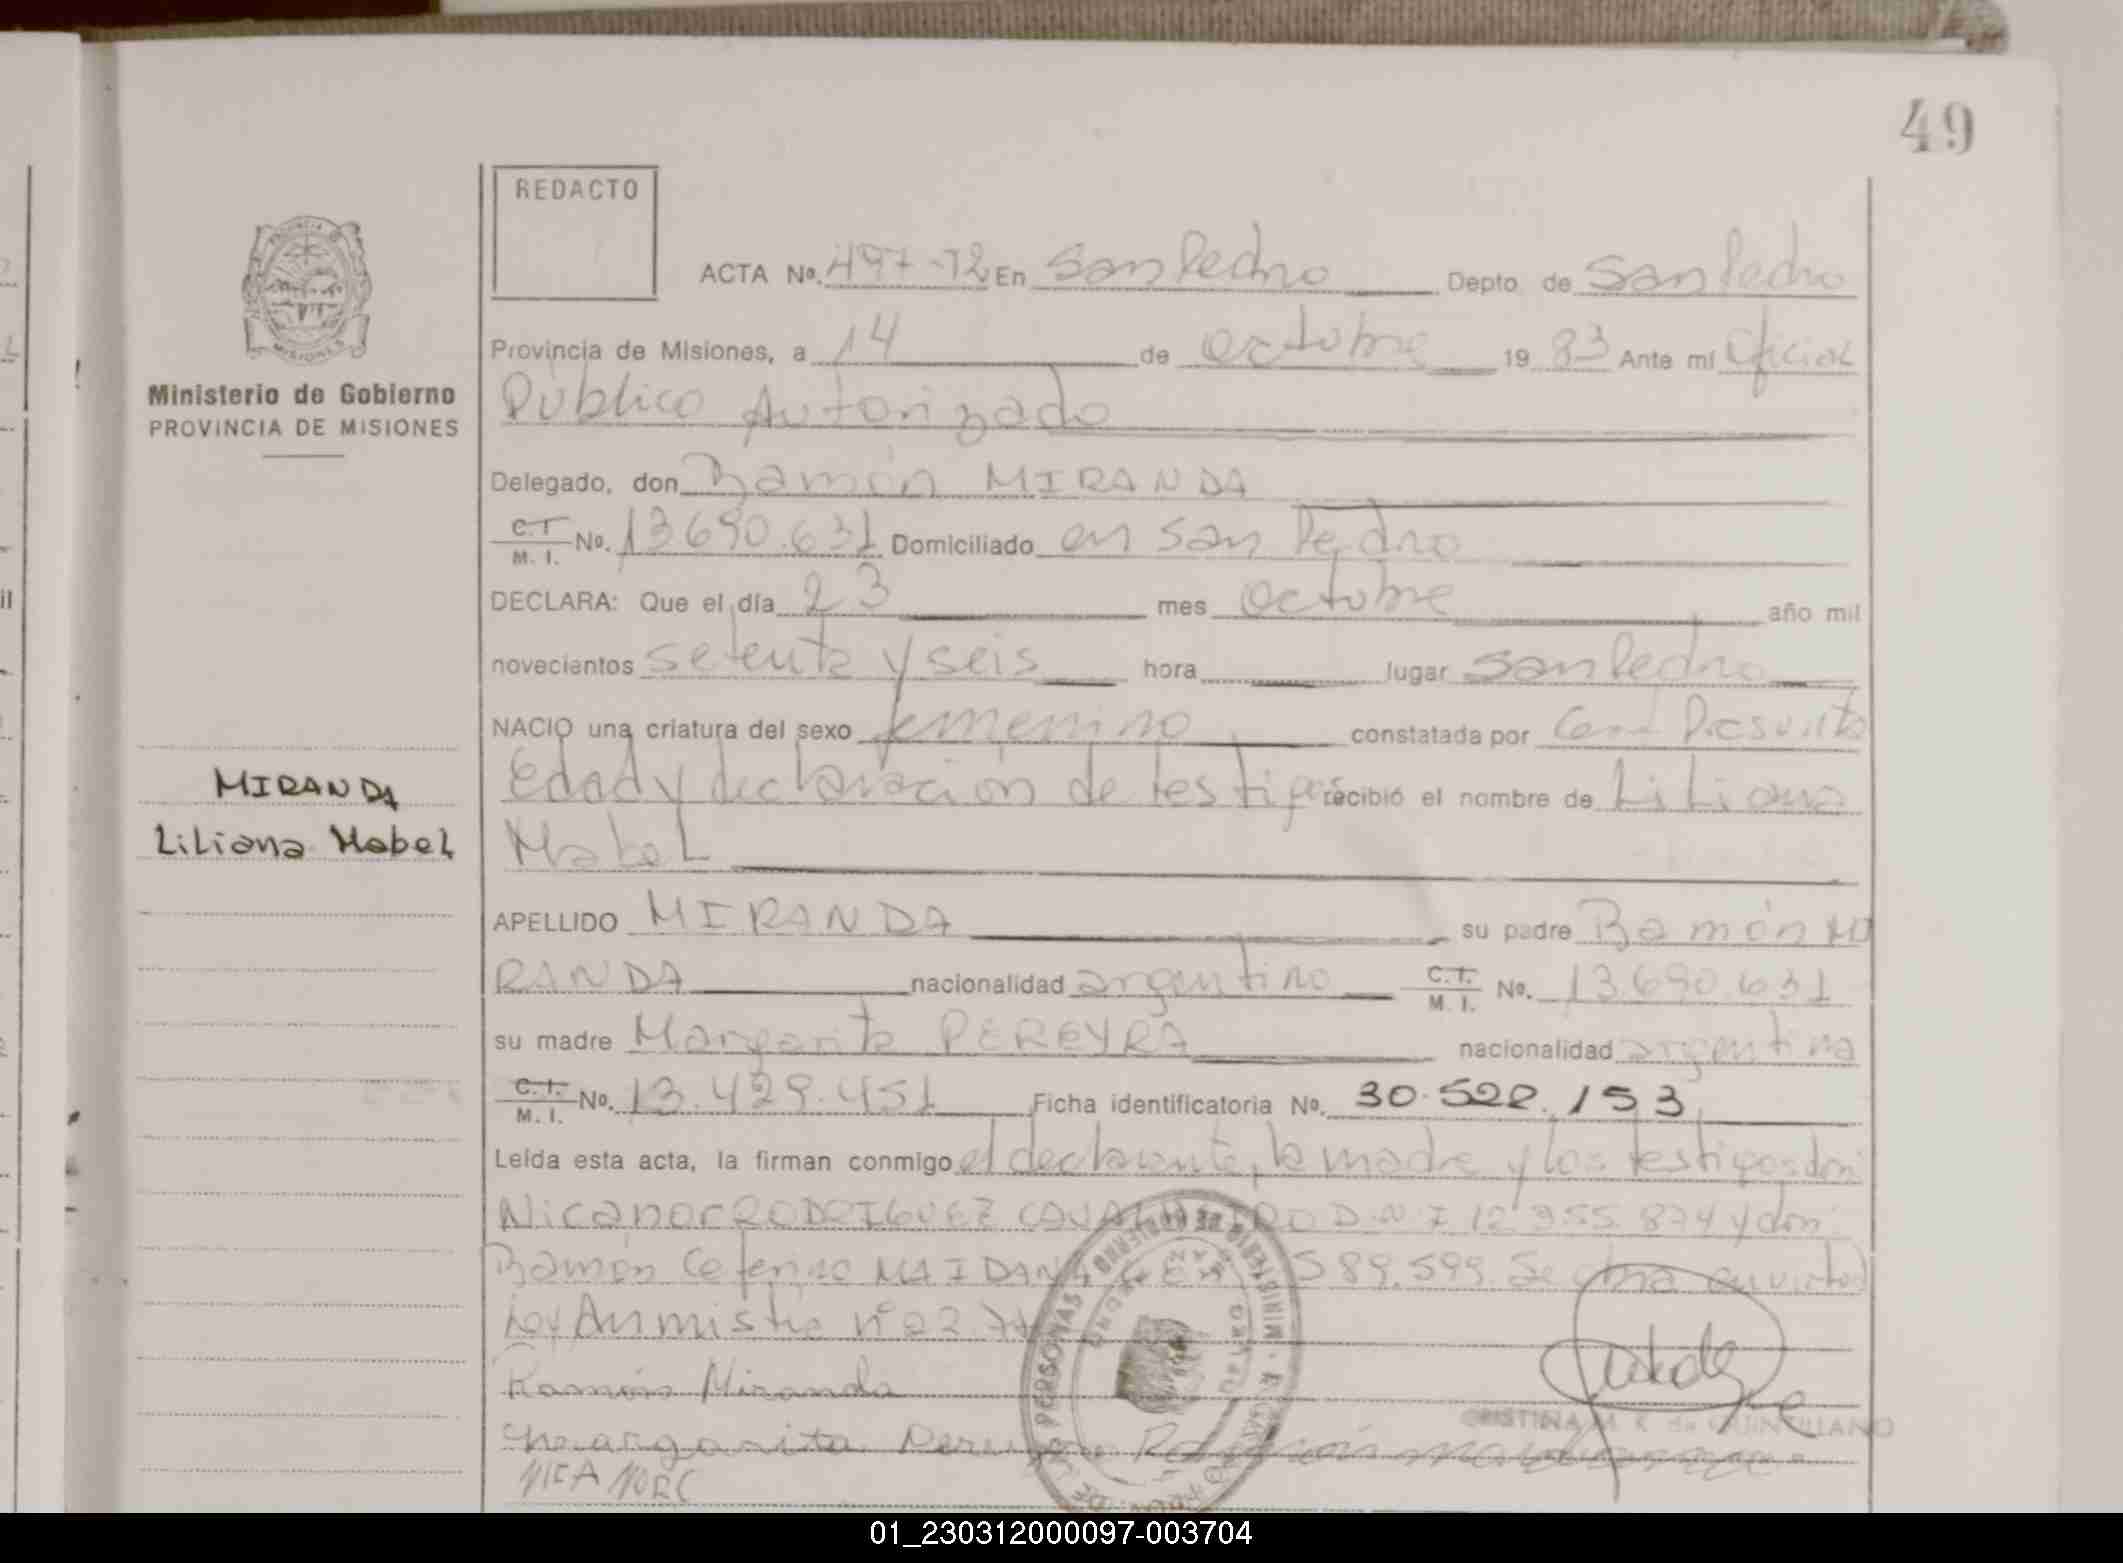 49
REDACTO
ACTA Nº. 497-T2 En San Pedro Depto de San Pedro
Provincia de Misiones, a 14 de octubre 1983 Ante mi Oficial
Público Autorizado
Ministerio de Gobierno
PROVINCIA DE MISIONES
Delegado, don Ramón MIRANDA
C.I. M. I. No. 13.690.631 Domiciliado en San Pedro
DECLARA: Que el día 23 mes octubre año mil
novecientos setenta y seis hora lugar San Pedro
NACIO una criatura del sexo femenino constatada por
Edad y declaración de testigos recibió el nombre de Liliana
Mabel
MIRANDA
Liliana Mabel
APELLIDO MIRANDA su padre Ramón MI
RANDA nacionalidad argentino C.I. M. I. No. 13.690.631
su madre Margarita PEREYRA nacionalidad argentina
C.I. M. I. No. 13.429.451 Ficha identificatoria No. 30.522.153
Leída esta acta, la firman conmigo el declarante, la madre y los testigos don
Nicanor RODRIGUEZ D.N.I 12.955.874 y don
Ramón Ceferino MAIDANA 589.599. Se obra en virtud
Ley Anmistia nº 22
Ramón Miranda
Margarita
NICANOR
CRISTINA M. R. de QUINTILIANO
01_230312000097-003704